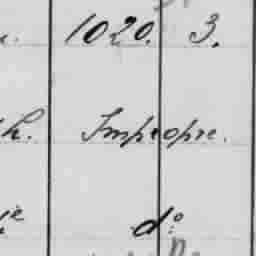 1020. 3.
h. Impropre.
e d°: